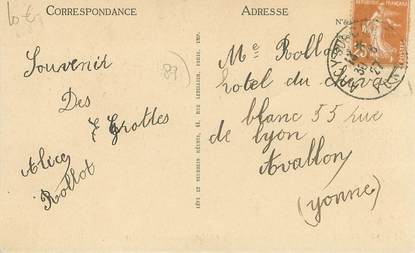 CORRESPONDANCE
Souvenir
Des
7 Grottes
Alice
Rollot
(89)
LÉVY ET NEURDEIN RÉUNIS, 44, RUE LETELLIER, PARIS, IMP.
ADRESSE
Me Rollot
hotel du cheval
blanc 55 rue
de Lyon
Avallon
(yonne)